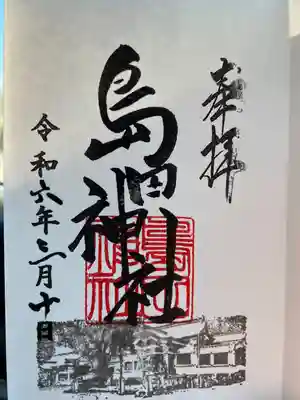 奉拝
島田神社
令和六年三月十日